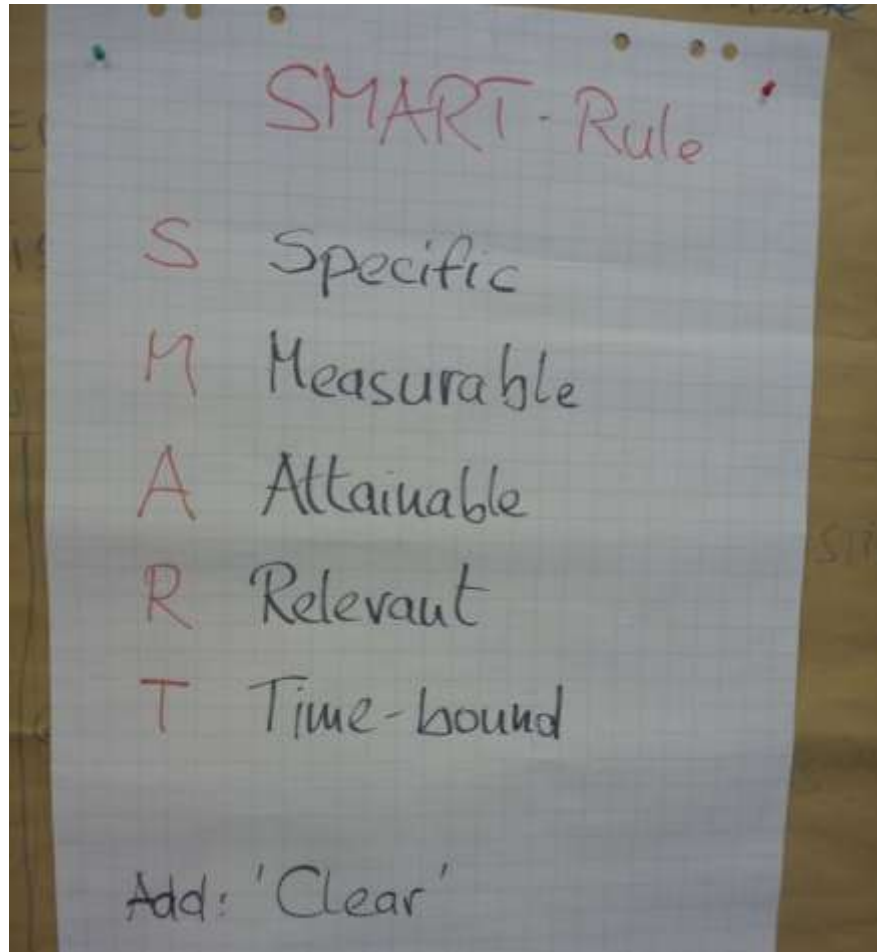 SMART-Rule
S Specific
M Measurable
A Attainable
R Relevant
T Time-bound
Add: 'Clear'